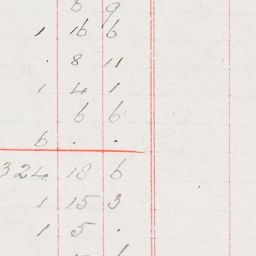 8 9
1 16 6
. 8 11
1 4 1
6 6
6 . .
324 18 6
1 15 3
1 5 .